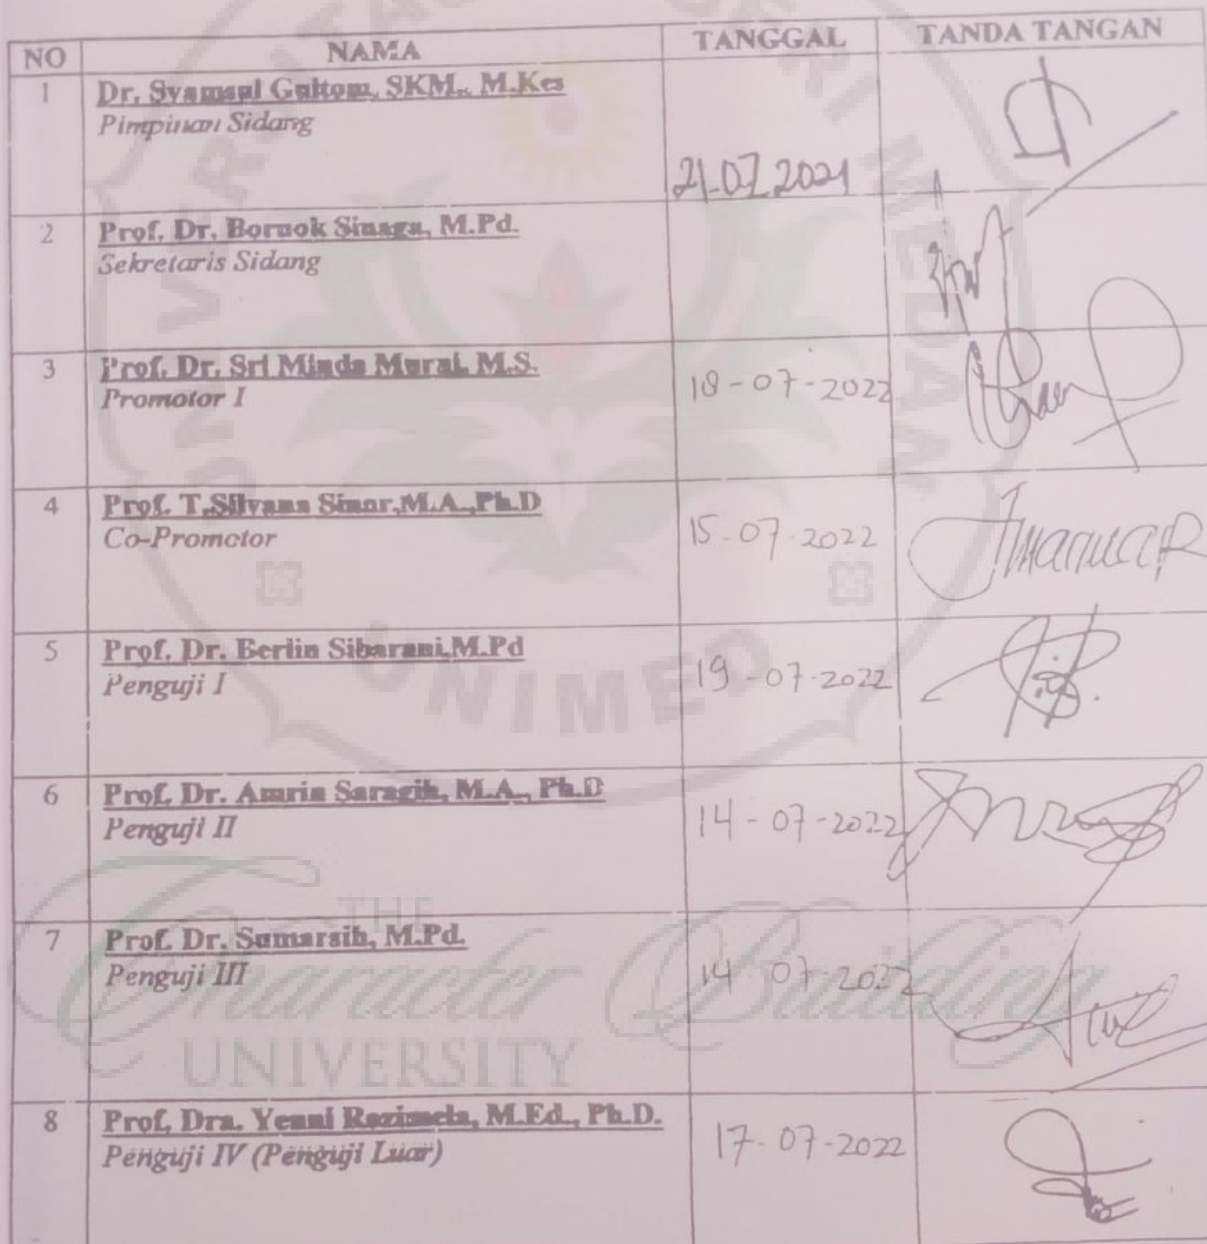 NO NAMA TANGGAL TANDA TANGAN
1 Dr. Syamsul Gultom, SKM., M.Kes
Pimpinan Sidang
21.07.2021
2 Prof. Dr. Bornok Sinaga, M.Pd.
Sekretaris Sidang
3 Prof. Dr. Sri Minda Murni, M.S.
Promotor I
18-07-2022
4 Prof. T.Silvana Sinar,M.A.,Ph.D
Co-Promotor
15-07-2022
5 Prof. Dr. Berlin Sibarani,M.Pd
Penguji I
19-07-2022
6 Prof. Dr. Amrin Saragih, M.A., Ph.D
Penguji II
14-07-2022
7 Prof. Dr. Sumarsih, M.Pd.
Penguji III
14 07-2022
8 Prof. Dra. Yenni Rozimela, M.Ed., Ph.D.
Penguji IV (Penguji Luar)
17-07-2022
UNIVERSITAS NEGERI MEDAN
UNIMED
THE
Character Building
UNIVERSITY